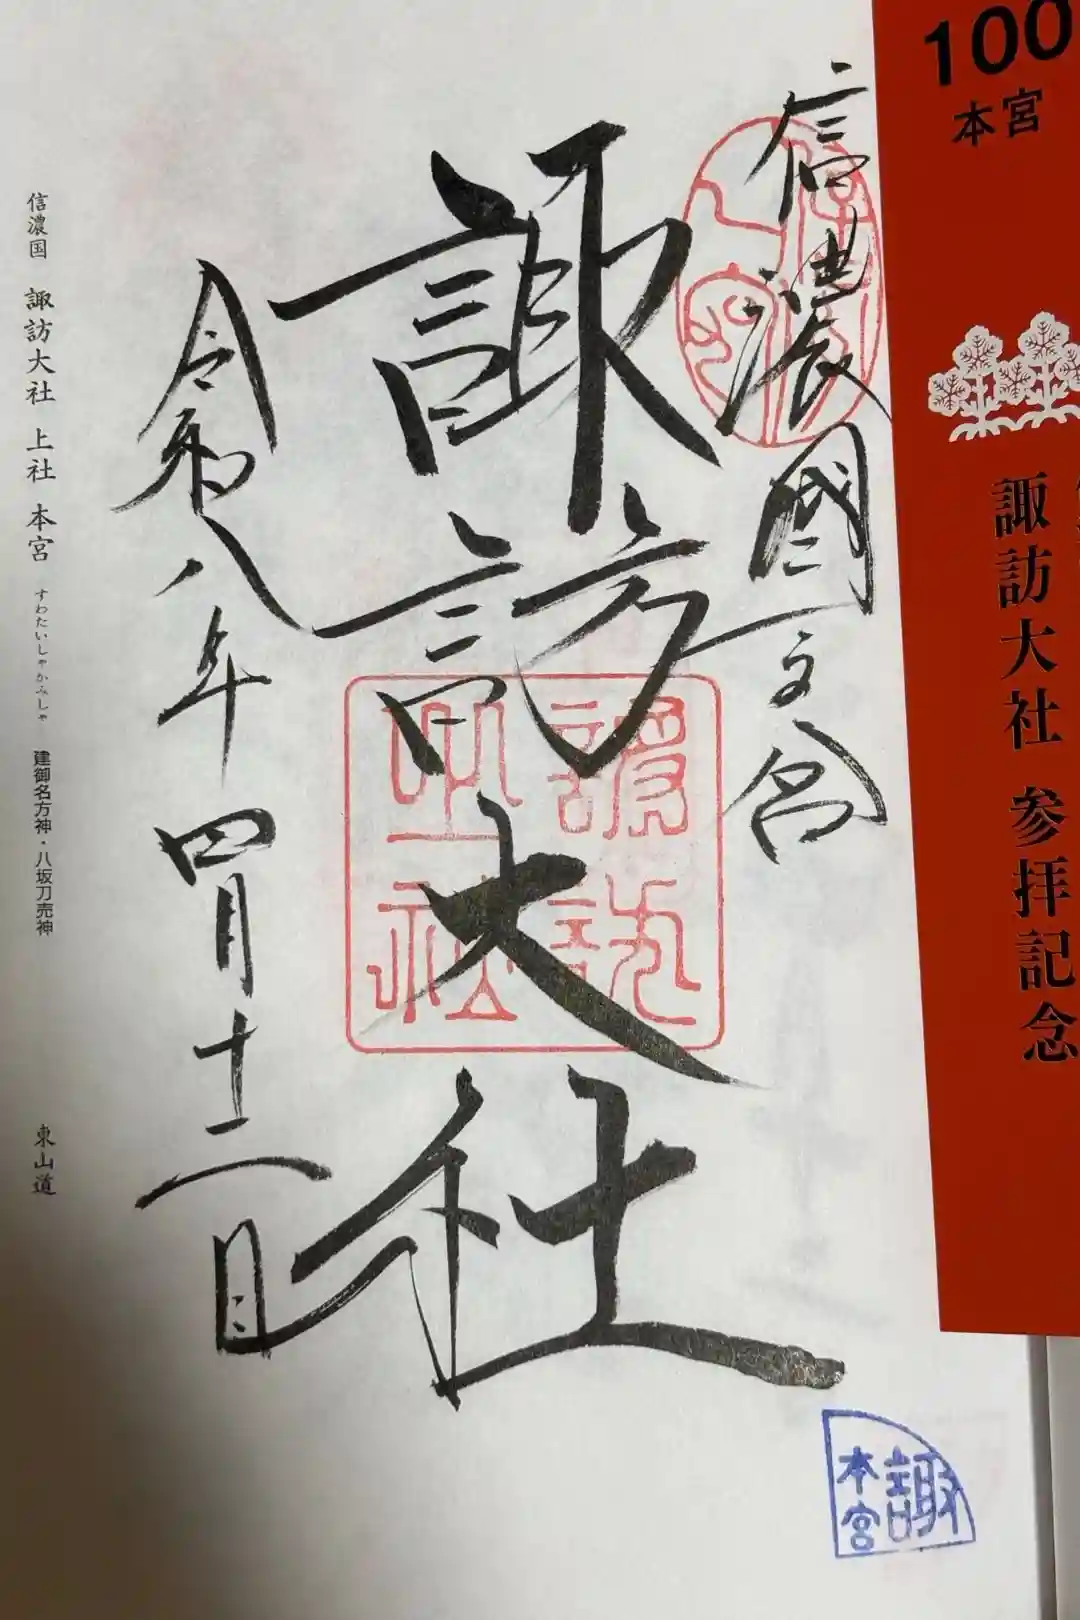 100
本宮
諏訪大社 参拝記念
信濃國一之宮
諏訪大社
令和八年四月十二日
諏訪
大社
信濃国 諏訪大社 上社 本宮 すわたいしゃかみしゃ 建御名方神・八坂刀売神 東山道
諏
本宮